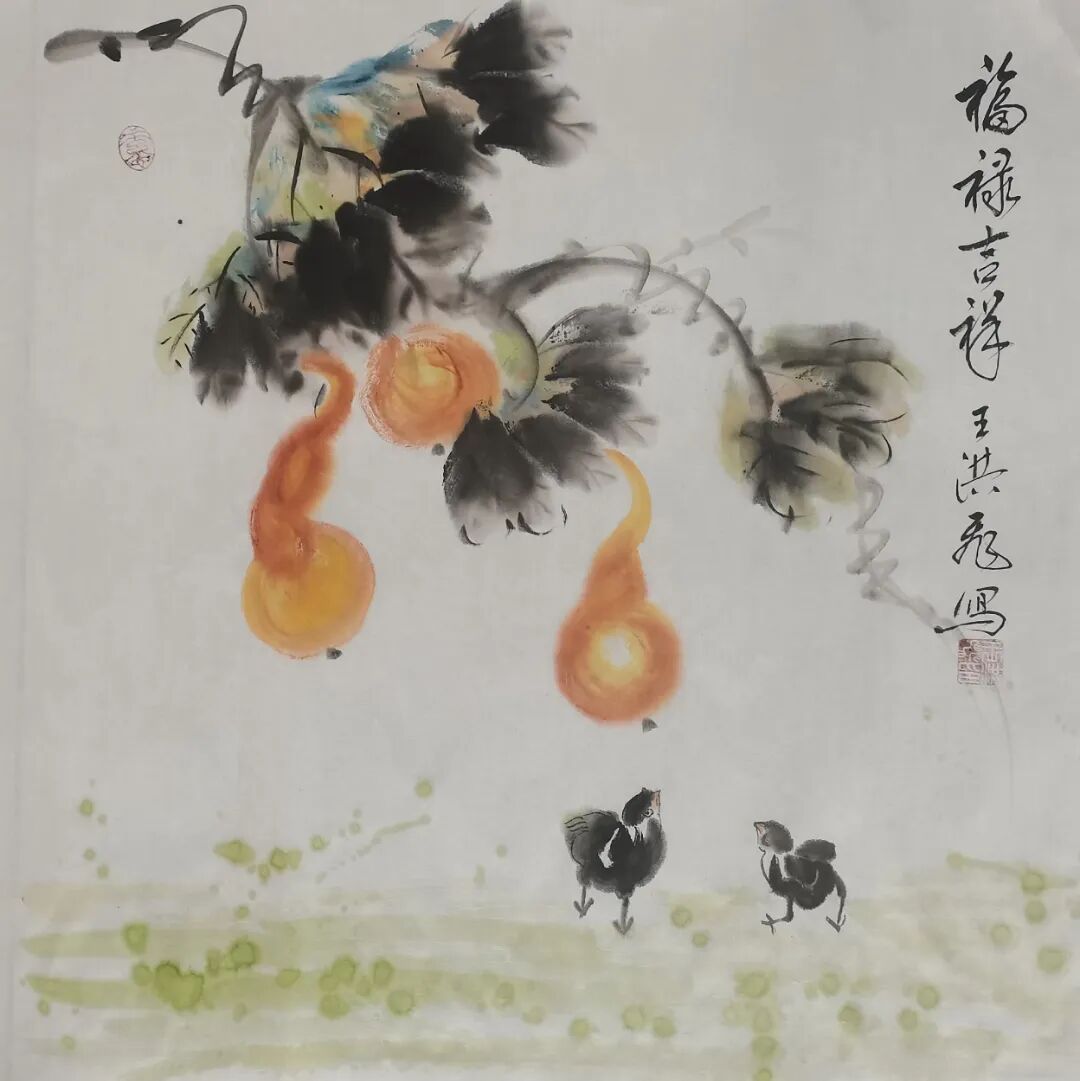 福禄吉祥 王洪飞写